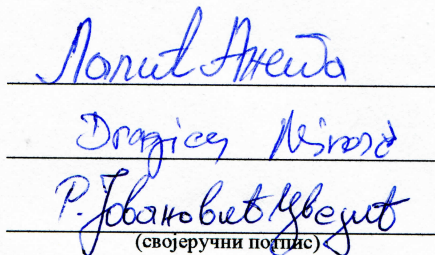 Лапит Анета
Dragica
Р. Јовановић Цведић
(својеручни потпис)